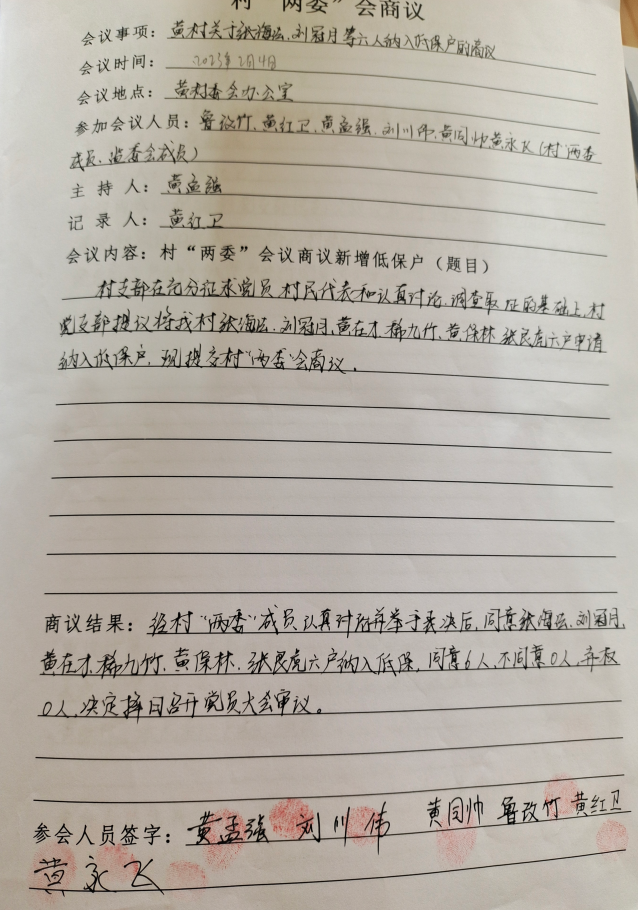 村“两委”会商议
会议事项：黄村关于张海运、刘冠月等六人纳入低保户的商议
会议时间：2023年2月4日
会议地点：黄村委会办公室
参加会议人员：鲁改竹、黄红卫、黄孟强、刘川伟、黄同帅、黄永飞（村“两委
成员、监委会成员）
主 持 人：黄孟强
记 录 人：黄红卫
会议内容：村“两委”会议商议新增低保户（题目）
村支部在充分征求党员、村民代表和认真讨论、调查取证的基础上，村
党支部提议将我村张海运、刘冠月、黄在才、九竹、黄保林、张民虎六户申请
纳入低保户，现提交村“两委”会商议。
商议结果：经村“两委”成员认真讨论并举手表决后，同意张海运、刘冠月、
黄在才、九竹、黄保林、张民虎六户纳入低保，同意6人，不同意0人，弃权
0人，决定择日召开党员大会审议。
参会人员签字：黄孟强 刘川伟 黄同帅 鲁改竹 黄红卫
黄永飞